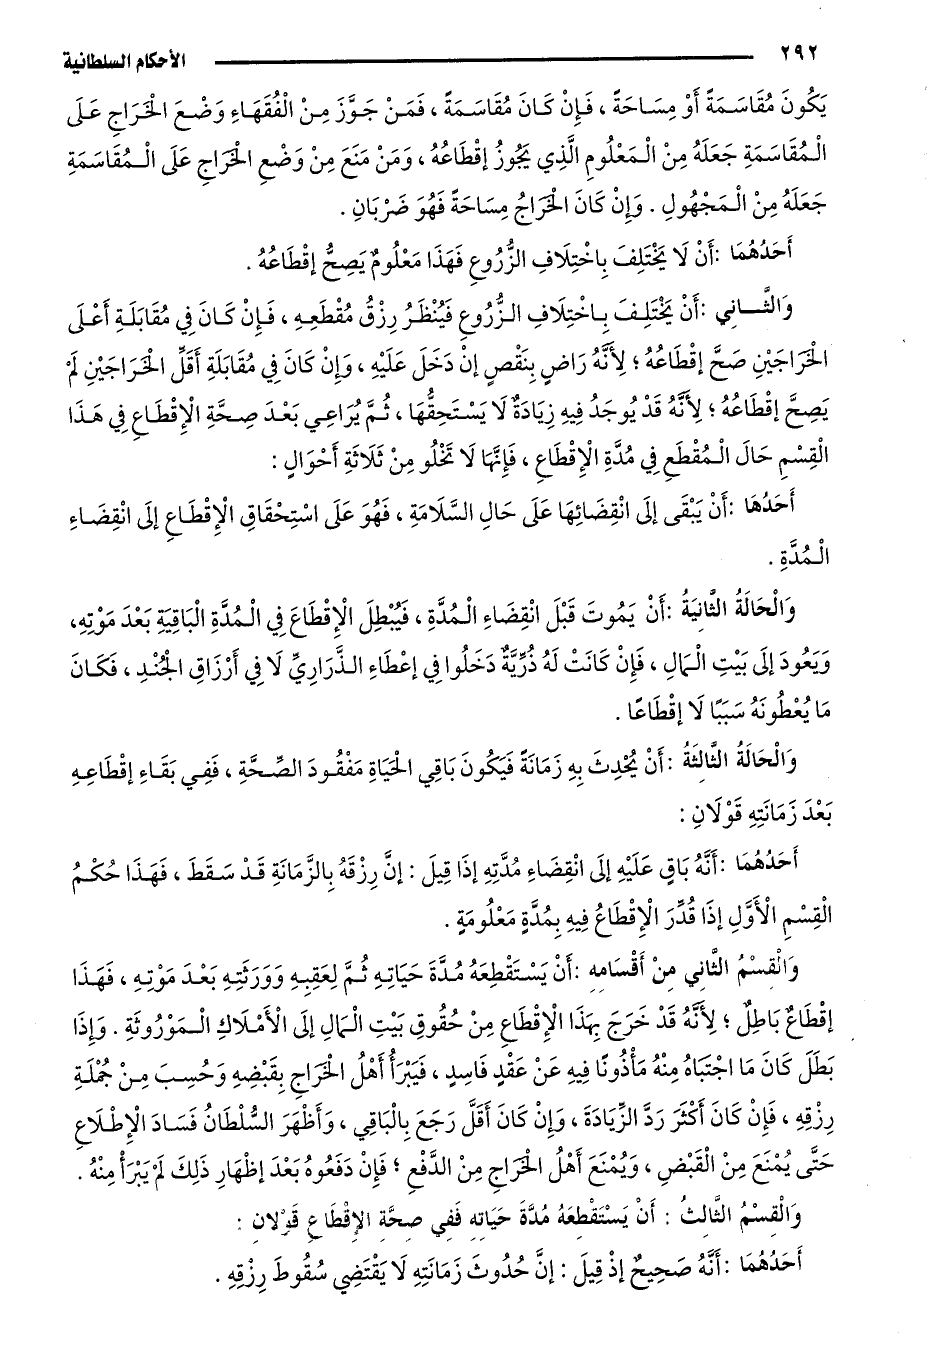 ٢٩٢ الأحكام السلطانية
يَكُونَ مُقَاسَمَةً أَوْ مِسَاحَةً ، فَإِنْ كَانَ مُقَاسَمَةً ، فَمَنْ جَوَّزَ مِنْ الْفُقَهَاءِ وَضْعَ الْخَرَاجِ عَلَى
الْمُقَاسَمَةِ جَعَلَهُ مِنْ الْمَعْلُومِ الَّذِي يَجُوزُ إقْطَاعُهُ ، وَمَنْ مَنَعَ مِنْ وَضْعِ الْخَرَاجِ عَلَى الْمُقَاسَمَةِ
جَعَلَهُ مِنْ الْمَجْهُولِ . وَإِنْ كَانَ الْخَرَاجُ مِسَاحَةً فَهُوَ ضَرْبَانِ .
أَحَدُهُمَا :أَنْ لَا يَخْتَلِفَ بِاخْتِلَافِ الزُّرُوعِ فَهَذَا مَعْلُومٌ يَصِحُّ إقْطَاعُهُ .
وَالثَّانِي :أَنْ يَخْتَلِفَ بِاخْتِلَافِ الزُّرُوعِ فَيُنْظَرُ رِزْقُ مُقْطَعِهِ ، فَإِنْ كَانَ فِي مُقَابَلَةِ أَعْلَى
الْخَرَاجَيْنِ صَحَّ إقْطَاعُهُ ؛ لِأَنَّهُ رَاضٍ بِنَقْصٍ إنْ دَخَلَ عَلَيْهِ ، وَإِنْ كَانَ فِي مُقَابَلَةِ أَقَلِّ الْخَرَاجَيْنِ لَمْ
يَصِحَّ إقْطَاعُهُ ؛ لِأَنَّهُ قَدْ يُوجَدُ فِيهِ زِيَادَةٌ لَا يَسْتَحِقُّهَا ، ثُمَّ يُرَاعِي بَعْدَ صِحَّةِ الْإِقْطَاعِ فِي هَذَا
الْقِسْمِ حَالَ الْمُقْطَعِ فِي مُدَّةِ الْإِقْطَاعِ ، فَإِنَّهَا لَا تَخْلُو مِنْ ثَلَاثَةِ أَحْوَالٍ :
أَحَدُهَا :أَنْ يَبْقَى إلَى انْقِضَائِهَا عَلَى حَالِ السَّلَامَةِ ، فَهُوَ عَلَى اسْتِحْقَاقِ الْإِقْطَاعِ إلَى انْقِضَاءِ
الْمُدَّةِ .
وَالْحَالَةُ الثَّانِيَةُ :أَنْ يَمُوتَ قَبْلَ انْقِضَاءِ الْمُدَّةِ ، فَيُبْطِلَ الْإِقْطَاعَ فِي الْمُدَّةِ الْبَاقِيَةِ بَعْدَ مَوْتِهِ،
وَيَعُودَ إلَى بَيْتِ الْمَالِ ، فَإِنْ كَانَتْ لَهُ ذُرِّيَّةٌ دَخَلُوا فِي إعْطَاءِ الذَّرَارِيِّ لَا فِي أَرْزَاقِ الْجُنْدِ ، فَكَانَ
مَا يُعْطُونَهُ سَبَبًا لَا إقْطَاعًا .
وَالْحَالَةُ الثَّالِثَةُ :أَنْ يُحْدِثَ بِهِ زَمَانَةً فَيَكُونَ بَاقِي الْحَيَاةِ مَفْقُودَ الصِّحَّةِ ، فَفِي بَقَاءِ إقْطَاعِهِ
بَعْدَ زَمَانَتِهِ قَوْلَانِ :
أَحَدُهُمَا :أَنَّهُ بَاقٍ عَلَيْهِ إلَى انْقِضَاءِ مُدَّتِهِ إذَا قِيلَ : إنَّ رِزْقَهُ بِالزَّمَانَةِ قَدْ سَقَطَ ، فَهَذَا حُكْمُ
الْقِسْمِ الْأَوَّلِ إذَا قُدِّرَ الْإِقْطَاعُ فِيهِ بِمُدَّةٍ مَعْلُومَةٍ .
وَالْقِسْمُ الثَّانِي مِنْ أَقْسَامِهِ :أَنْ يَسْتَقْطِعَهُ مُدَّةَ حَيَاتِهِ ثُمَّ لِعَقِبِهِ وَوَرَثَتِهِ بَعْدَ مَوْتِهِ ، فَهَذَا
إقْطَاعٌ بَاطِلٌ ؛ لِأَنَّهُ قَدْ خَرَجَ بِهَذَا الْإِقْطَاعِ مِنْ حُقُوقِ بَيْتِ الْمَالِ إلَى الْأَمْلَاكِ الْمَوْرُوثَةِ . وَإِذَا
بَطَلَ كَانَ مَا اجْتَبَاهُ مِنْهُ مَأْذُونًا فِيهِ عَنْ عَقْدٍ فَاسِدٍ ، فَيَبْرَأُ أَهْلُ الْخَرَاجِ بِقَبْضِهِ وَحُسِبَ مِنْ جُمْلَةِ
رِزْقِهِ ، فَإِنْ كَانَ أَكْثَرَ رَدَّ الزِّيَادَةَ ، وَإِنْ كَانَ أَقَلَّ رَجَعَ بِالْبَاقِي ، وَأَظْهَرَ السُّلْطَانُ فَسَادَ الْإِطْلَاعِ
حَتَّى يُمْنَعَ مِنْ الْقَبْضِ ، وَيُمْنَعَ أَهْلُ الْخَرَاجِ مِنْ الدَّفْعِ ؛ فَإِنْ دَفَعُوهُ بَعْدَ إظْهَارِ ذَلِكَ لَمْ يَبْرَأْ مِنْهُ .
وَالْقِسْمُ الثَّالِثُ : أَنْ يَسْتَقْطِعَهُ مُدَّةَ حَيَاتِهِ فَفِي صِحَّةِ الْإِقْطَاعِ قَوْلَانِ :
أَحَدُهُمَا : أَنَّهُ صَحِيحٌ إذْ قِيلَ : إنَّ حُدُوثَ زَمَانَتِهِ لَا يَقْتَضِي سُقُوطَ رِزْقِهِ .